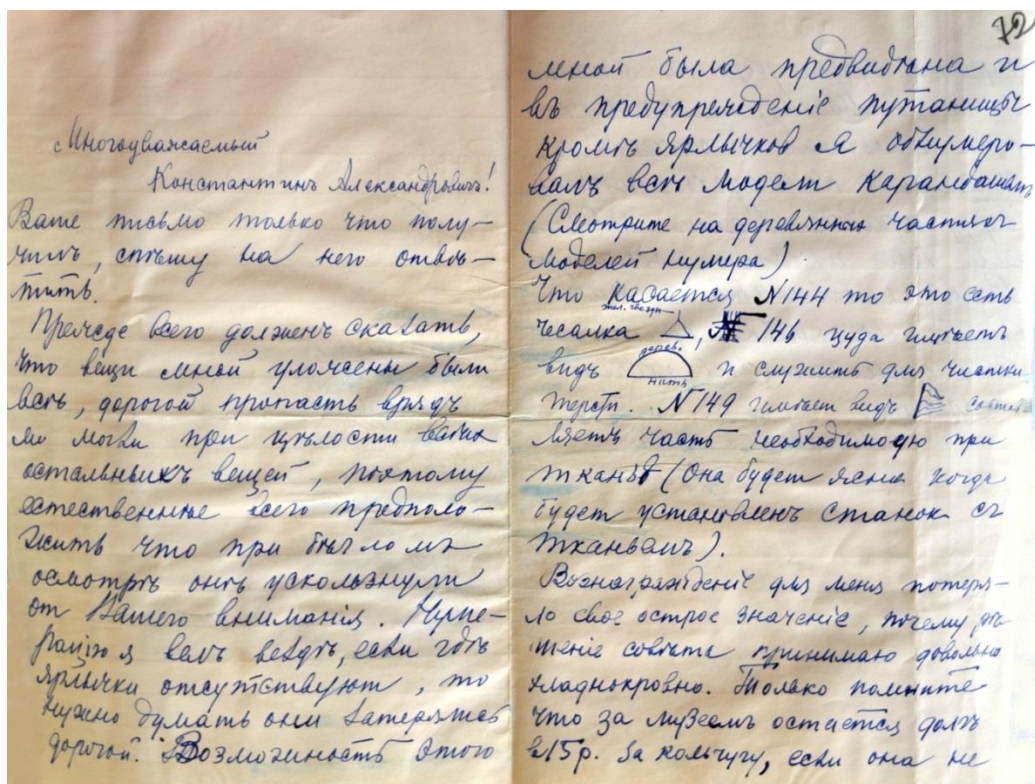 Многоуважаемый
Константинъ Александровичъ!
Ваше письмо только что полу-
чилъ, спѣшу на него отвѣ-
тить.
Прежде всего долженъ сказать,
что вещи мной уложены были
всѣ, дорогой пропасть врядъ
ли могли при цѣлости
остальныхъ вещей, поэтому
естественнѣе всего предполо-
жить что при бѣгломъ
осмотрѣ онѣ ускользнули
от Вашего вниманія. Нуме-
рацію я велъ вездѣ, если гдѣ
ярлычки отсутствуют, то
нужно думать они затерялись
дорогой. Возможность этого
72
мной была предвидѣна и
въ предупрежденіе путаницы
кромѣ ярлычков я обнумеро-
валъ всѣ модели карандашамъ
(Смотрите на деревянных частях
моделей нумера)
Что касается N144 то это есть
жел. гвозди
чесалка , 146 цуда имѣетъ
дерево
видъ и служитъ для чистки
нить
шерсти. N149 имѣет видъ состав
ляетъ часть необходимою при
тканьѣ (Она будет ясна когда
будет установленъ станок съ
тканьемъ).
Вознагражденіе для меня потеря-
ло свое острое значеніе, почему рѣ
шеніе совѣта принимаю довольно
хладнокровно. Только помните
что за музеемъ остается долгъ
15р. За кольчугу, если она не